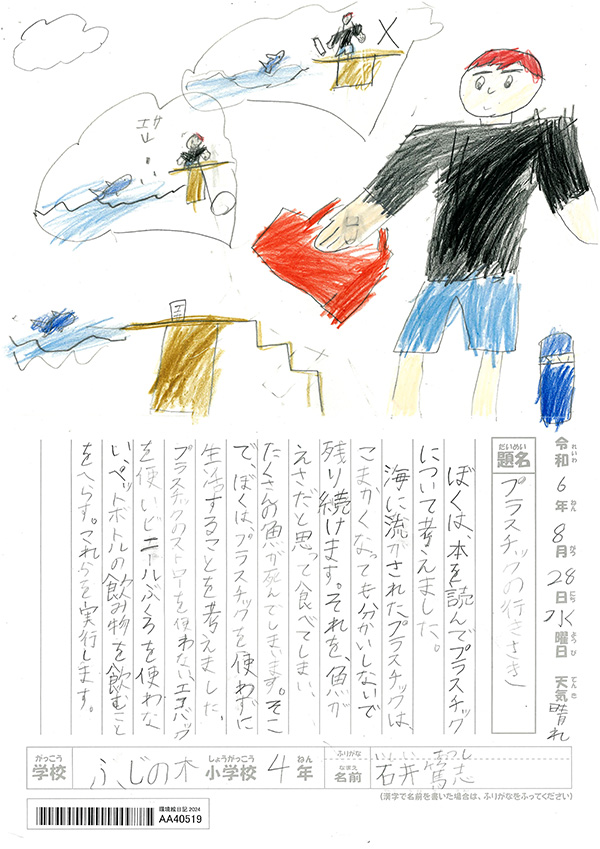 X
エサ
令和6年8月28日水曜日 天気 晴れ
れいわ ねん がつ にち ようび てんき
だいめい
題名
プラスチックの行きさき
ぼくは、本を読んでプラスチック
について考えました。
海に流がされたプラスチックは、
こまかくなっても分かいしないで
残り続けます。それを、魚が
えさだと思って食べてしまい
たくさんの魚が死んでしまいます。そこ
で、ぼくはプラスチックを使わずに
生活することを考えました。
プラスチックのストローを使わない、エコバッグ
を使いビニールぶくろを使わな
い、ペットボトルの飲み物を飲むこと
をへらす。これらを実行します。
がっこう
学校
ふじの木
しょうがっこう
小学校
4
ねん
年
ふりがな
いしい あつし
なまえ
名前
石井 篤志
(漢字で名前を書いた場合は、ふりがなをふってください)
環境絵日記 2024
AA40519